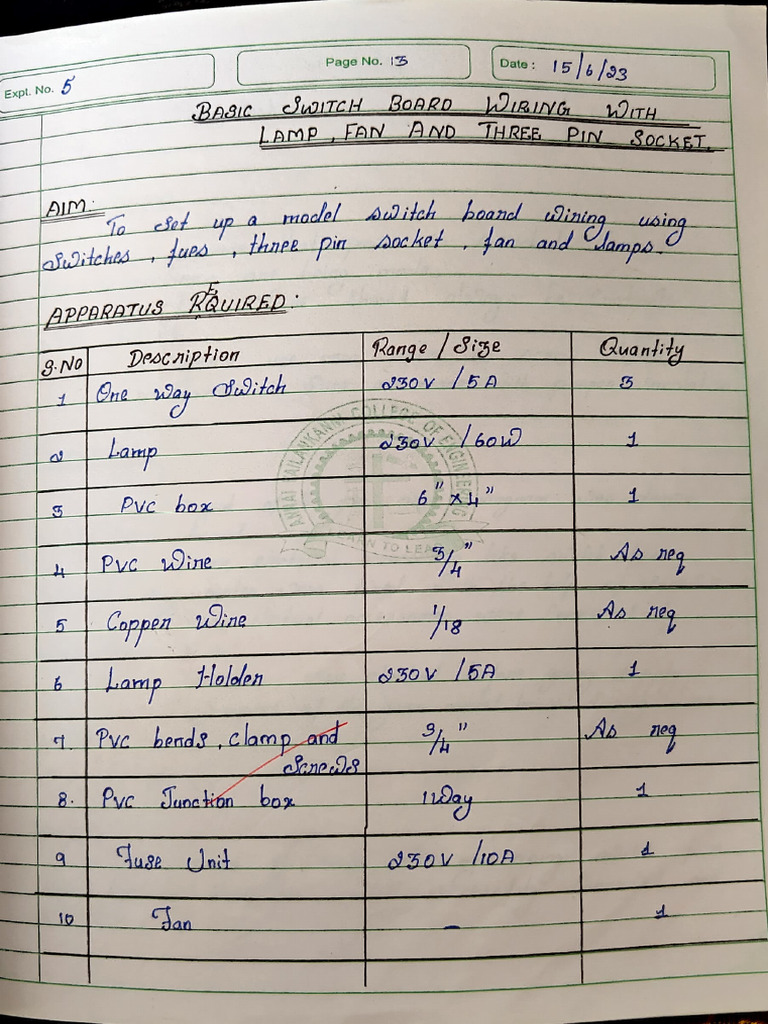 Expl. No. 5 Page No. 13 Date : 15/6/23
BASIC SWITCH BOARD WIRING WITH
LAMP, FAN AND THREE PIN SOCKET.
AIM:
To set up a model switch board wiring using
switches, fues, three pin socket, fan and lamps.
APPARATUS REQUIRED:
S.No Description Range / Size Quantity
1 One Way Switch 230V / 5A 3
2 Lamp 230V / 60W 1
3 PVC box 6" x 4" 1
4 PVC Wire 3/4" As req
5 Copper Wire 1/18 As req
6 Lamp Holder 230V / 5A 1
7. PVC bends, clamp and 3/4" As req
Screws
8. PVC Junction box 1 Way 1
9 Fuse Unit 230V /10A 1
10 Fan - 1
COLLEGE OF ENGINEERING